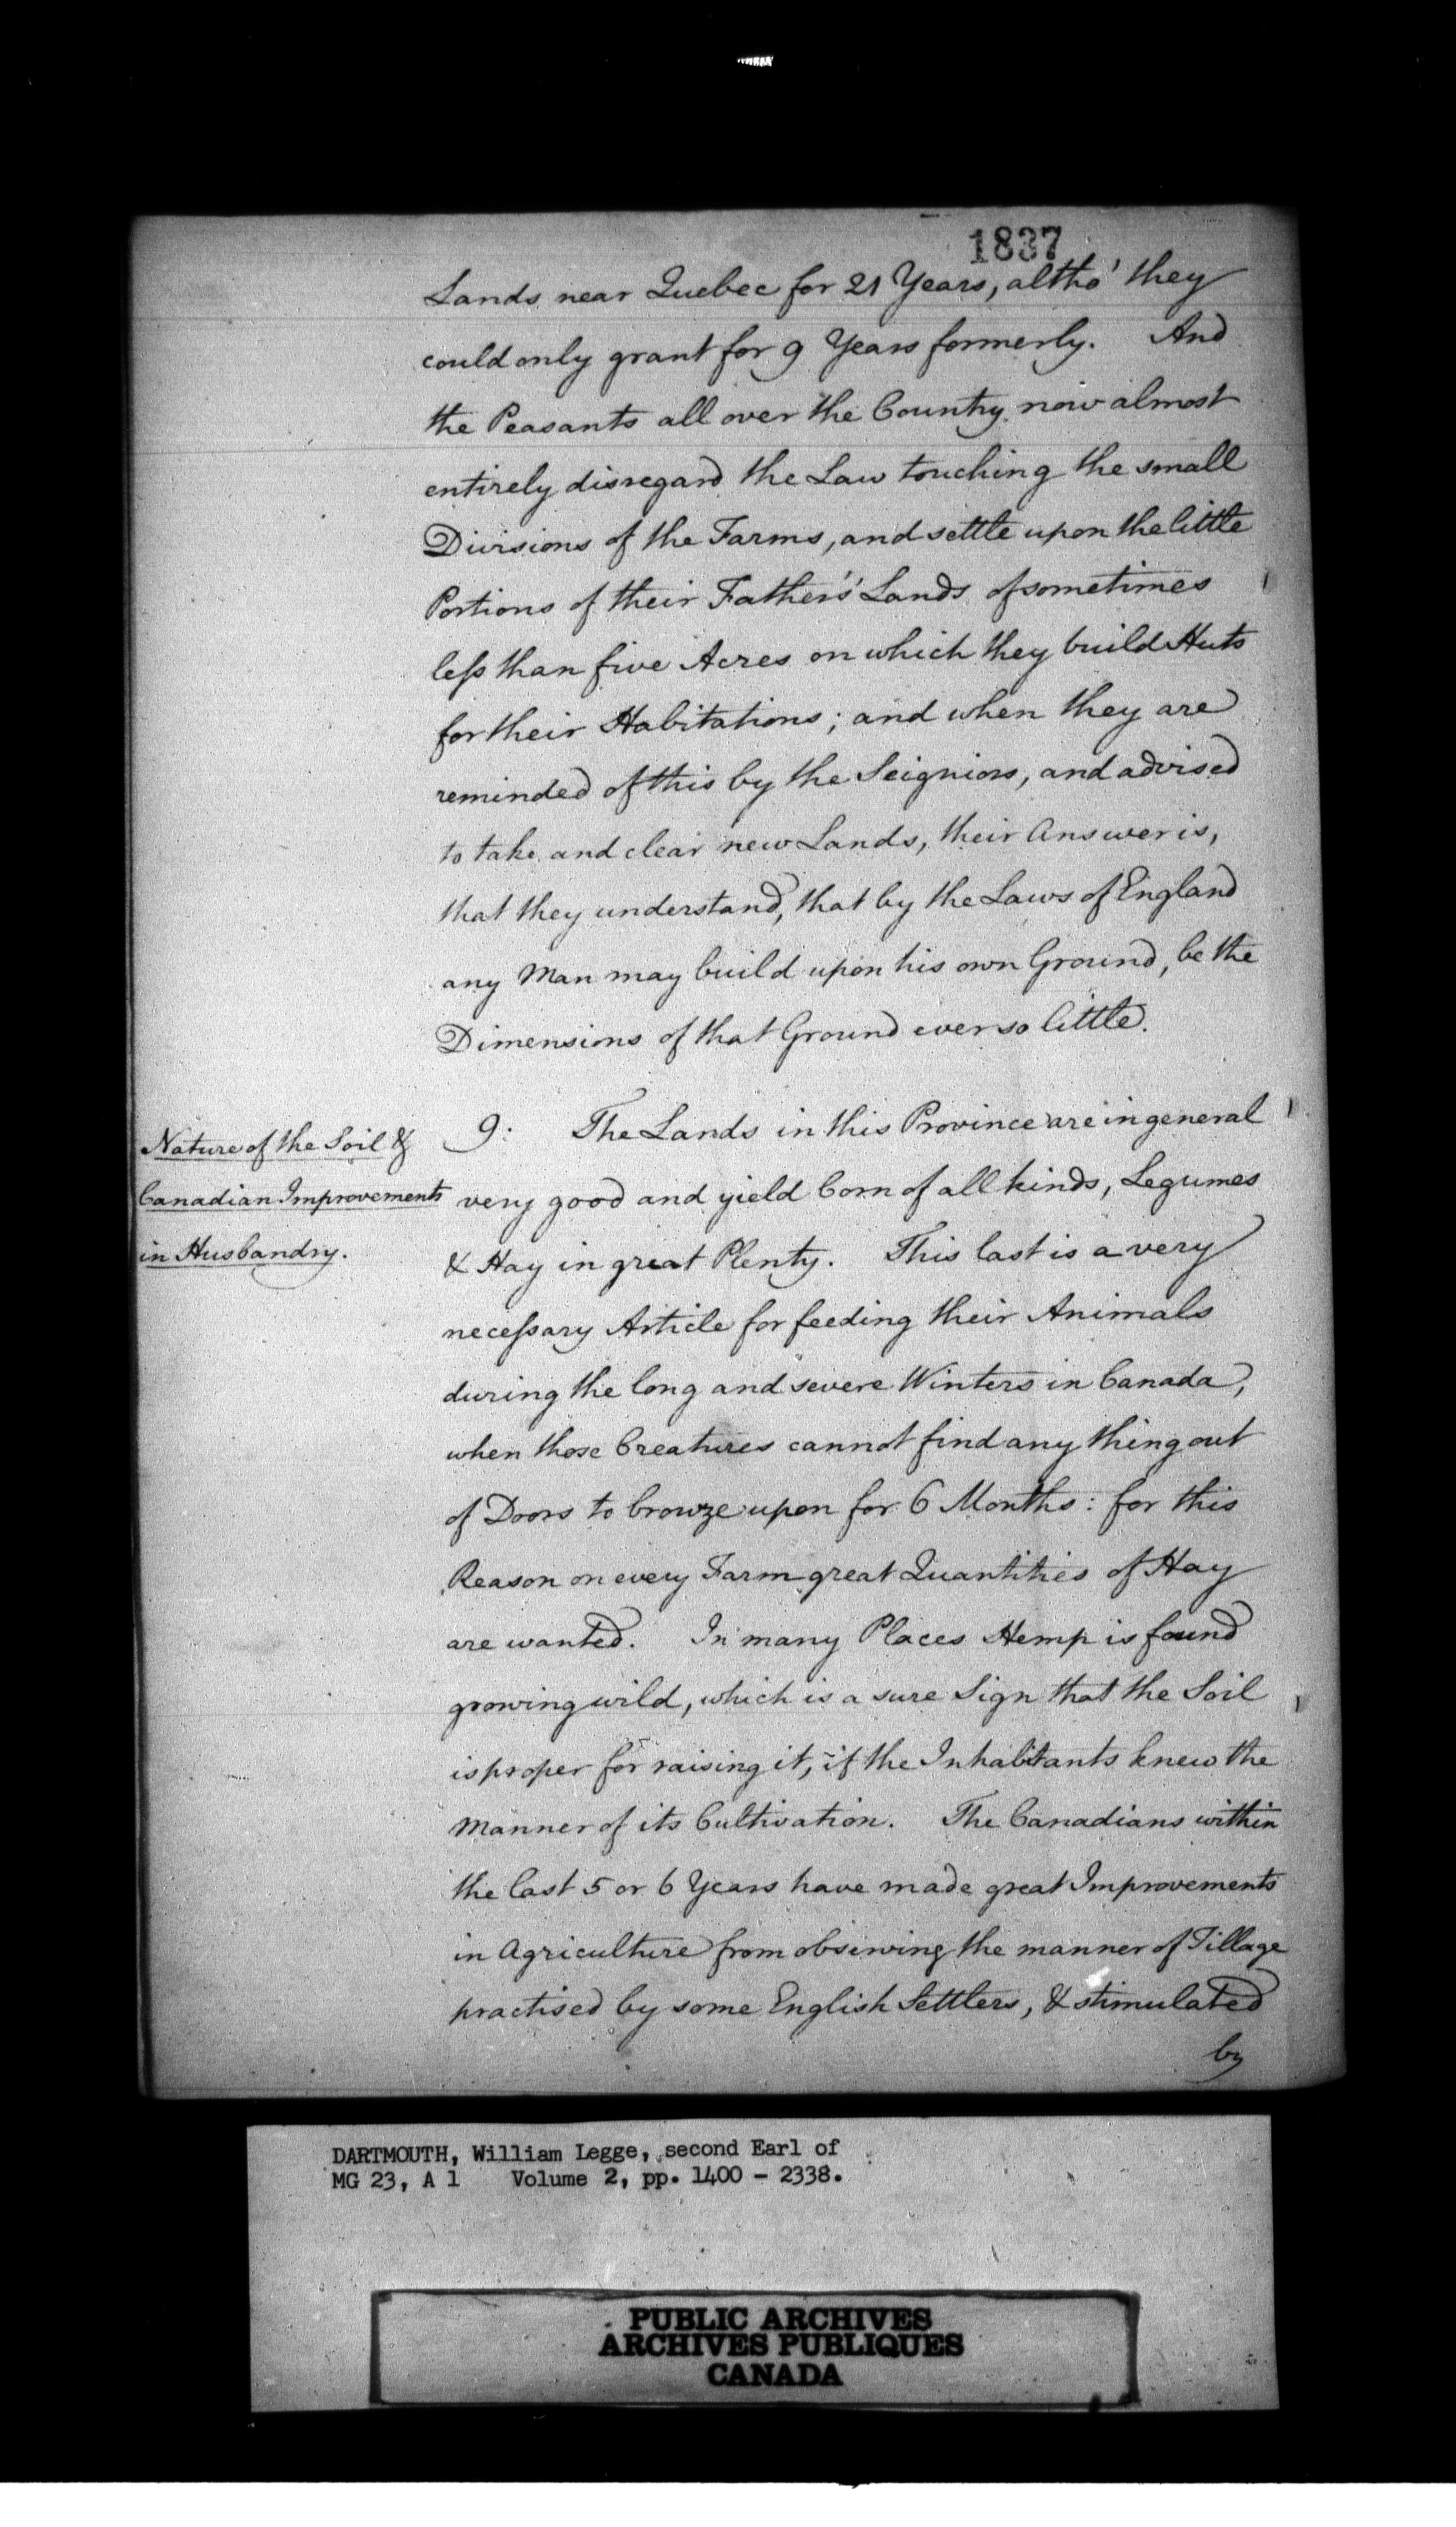 1837
Lands near Quebec for 21 Years, altho' they
could only grant for 9 Years formerly. And
the Peasants all over the Country now almost
entirely disregard the Law touching the small
Divisions of the Farms, and settle upon the little
Portions of their Father's Lands of sometimes
leſs than five Acres on which they build Huts
for their Habitations; and when they are
reminded of this by the Seigniors, and advised
to take and clear new Lands, their Answer is,
that they understand, that by the Laws of England
any Man may build upon his own Ground, be the
Dimensions of that Ground ever so little.
Nature of the Soil &
Canadian Improvements
in Husbandry.
9: The Lands in this Province are in general
very good and yield Corn of all kinds, Legumes
& Hay in great Plenty. This last is a very
neceſsary Article for feeding their Animals
during the long and severe Winters in Canada,
when those Creatures cannot find any thing out
of Doors to browze upon for 6 Months: for this
Reason on every Farm great Quantities of Hay
are wanted. In many Places Hemp is found
growing wild, which is a sure Sign that the Soil
is proper for raising it, if the Inhabitants knew the
manner of its Cultivation. The Canadians within
the last 5 or 6 Years have made great Improvements
in Agriculture from observing the manner of Tillage
practised by some English Settlers, & stimulated
by
DARTMOUTH, William Legge, second Earl of
MG 23, A 1 Volume 2, pp. 1400 - 2338.
PUBLIC ARCHIVES
ARCHIVES PUBLIQUES
CANADA